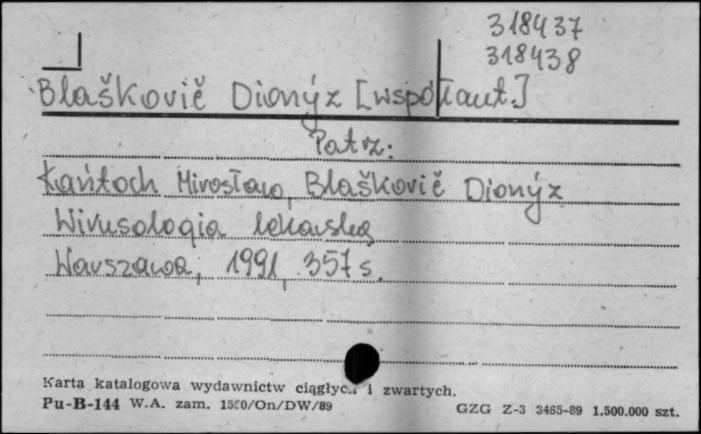 318437
318438
Blaškovič Dionýz [współaut.]
Patrz:
Kańtoch Mirosława, Blaškovič Dionýz
Wirusologia lekarska
Warszawa, 1991, 357 s.
Karta katalogowa wydawnictw ciągłych i zwartych.
Pu-B-144 W.A. zam. 1560/On/DW/89
GZG Z-3 3465-89 1.500.000 szt.